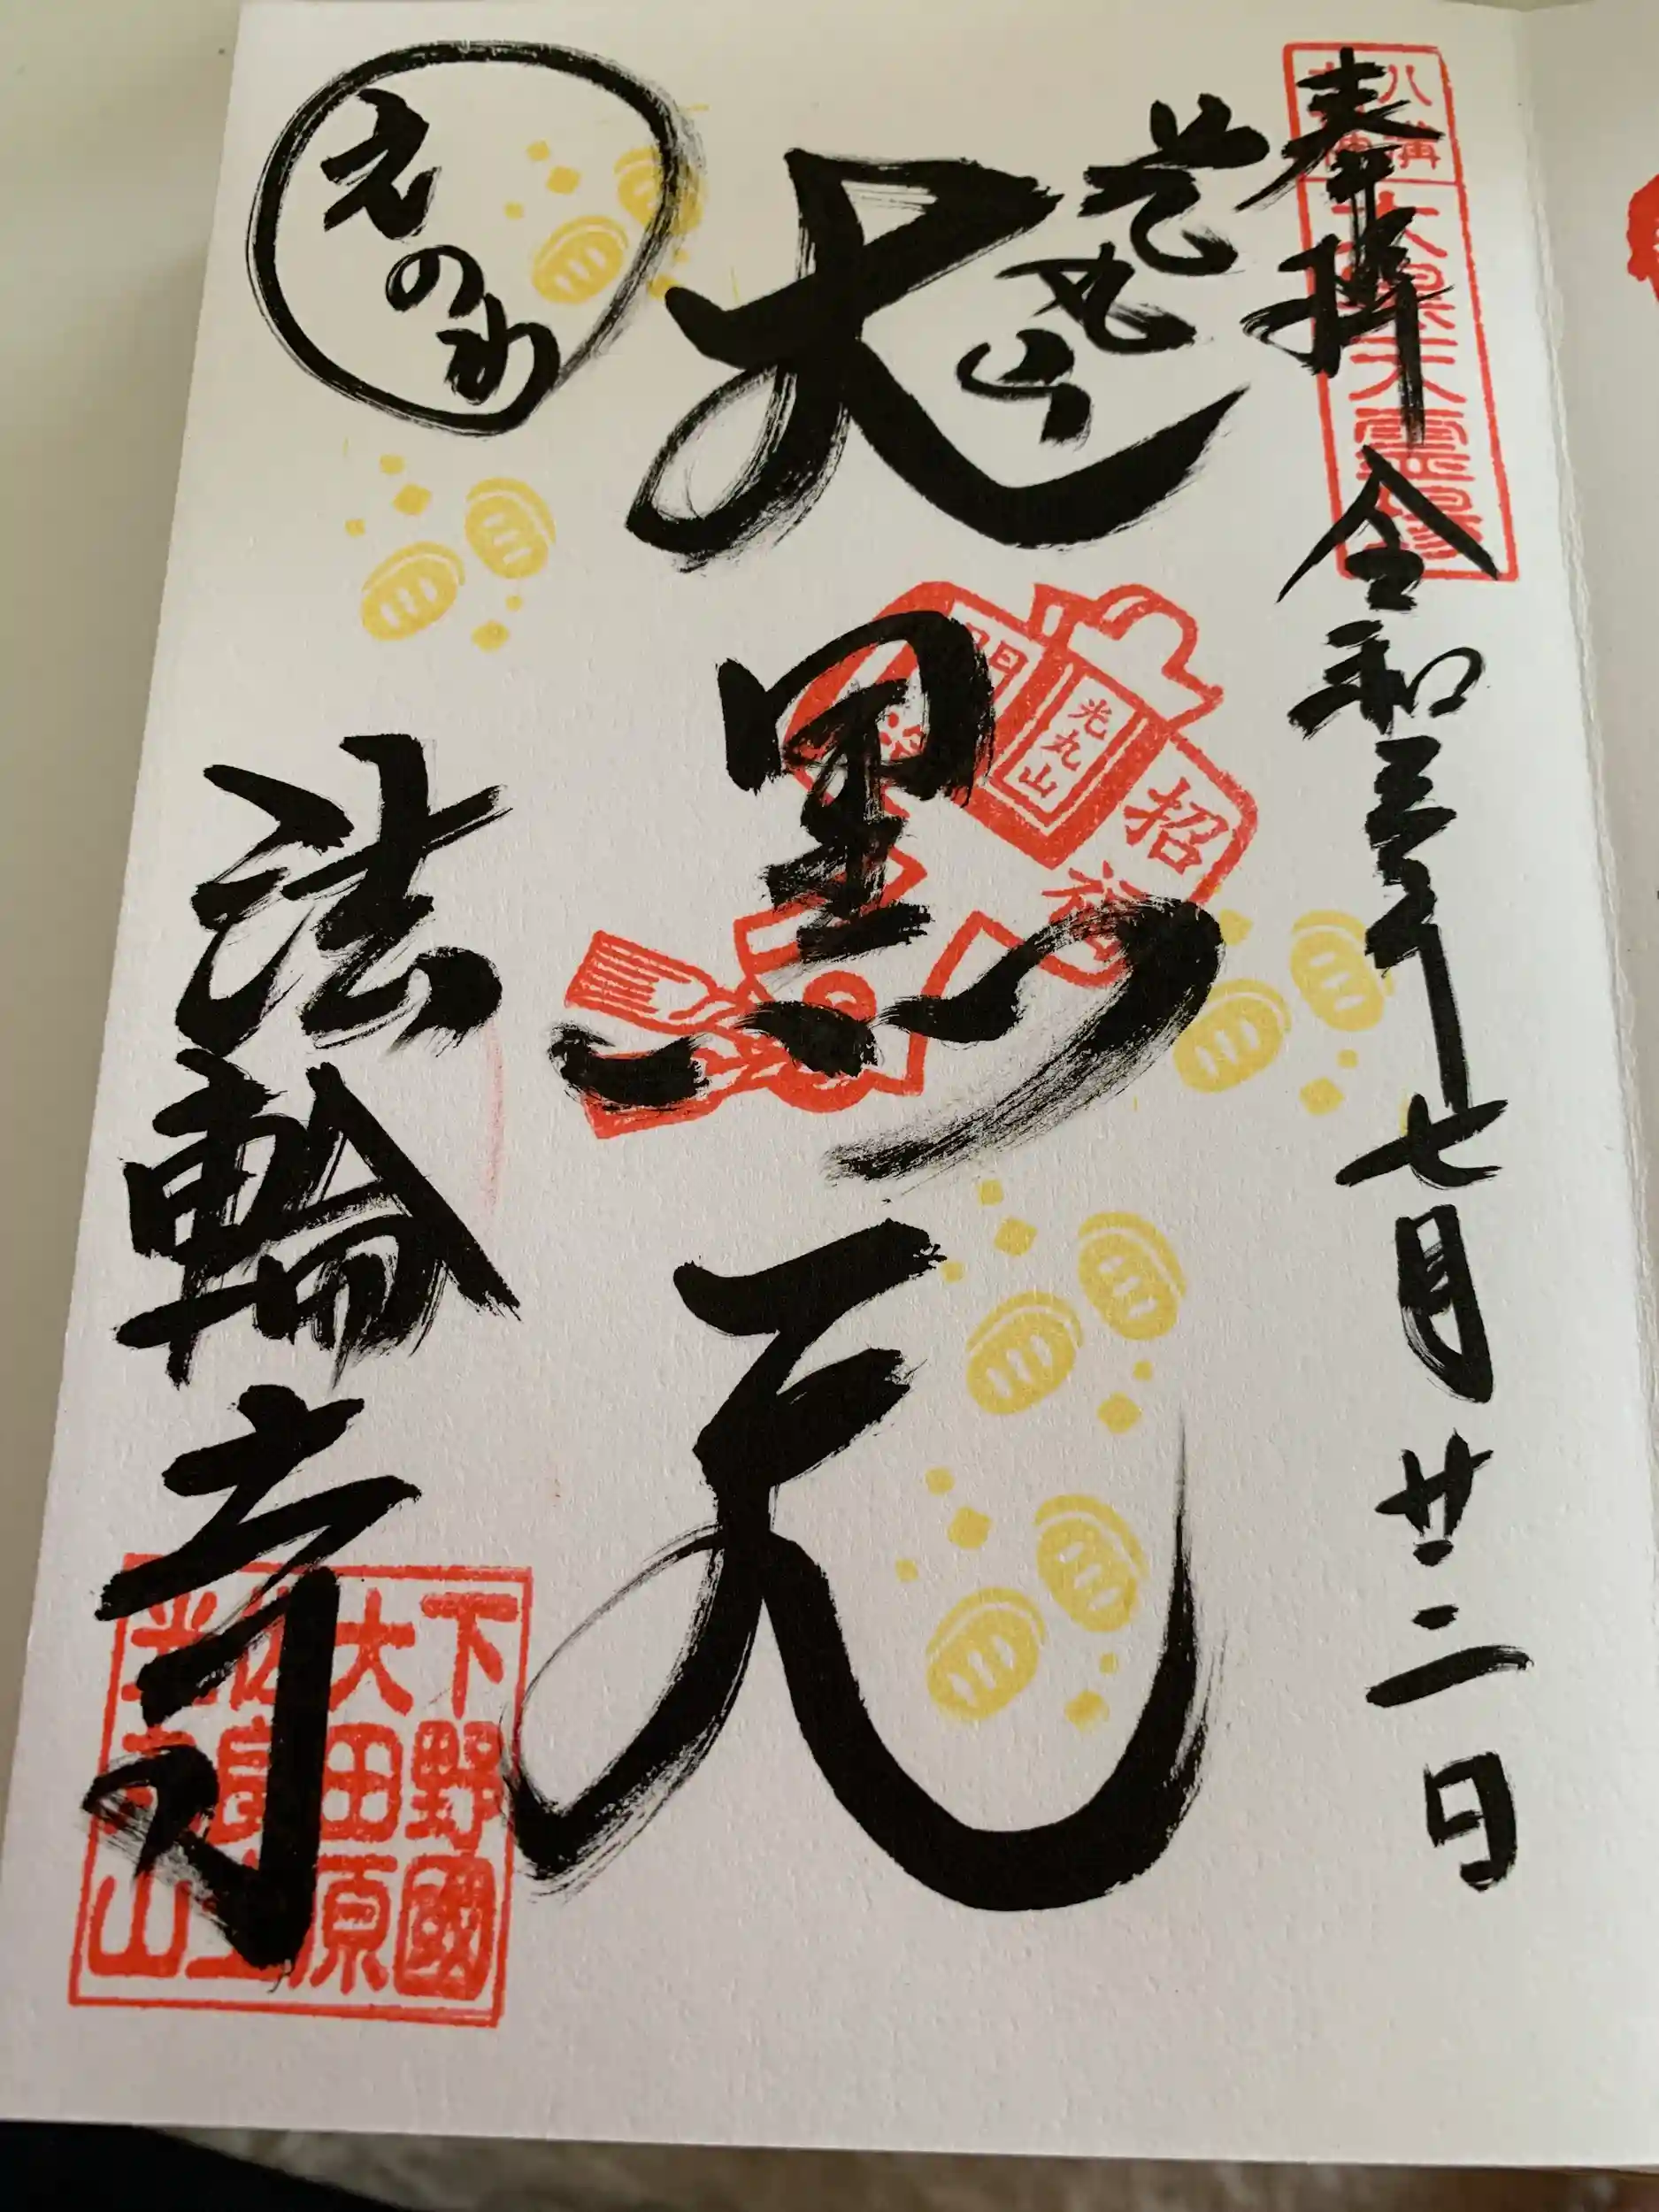 奉拝 令和三年七月廿二日
八溝
大黒天霊場
光丸山
大黒天
開運
光丸山
招福
えのわ
法輪寺
下野國
大田原
佐良土
光丸山